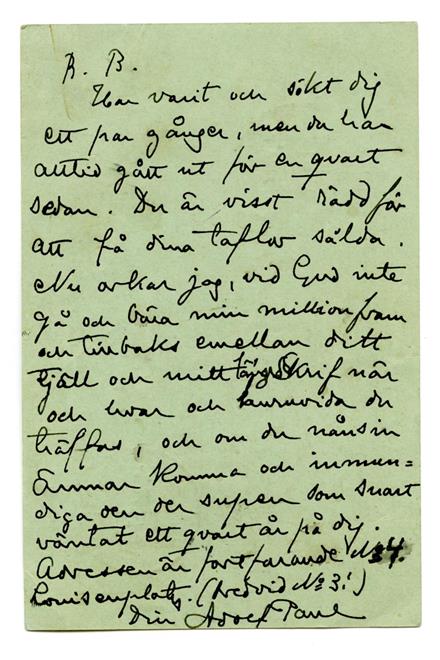 R. B.
Har varit och sökt dig
ett par gånger, men du har
alltid gått ut för en qvart
sedan. Du är visst rädd för
att få dina taflor sålda.
Nu orkar jag, vid Gud inte
gå och bära min million fram
och tillbaks emellan ditt
tjäll och mitt längre. Skrif när
och hvar och huruvida du
träffas, och om du nånsin
ämnar komma och inmun=
diga den der supen som snart
väntat ett qvart år på dig.
Adressen är fortfarande No 4.
Louisenplatz. (bredvid No 3!)
Din Adolf Paul